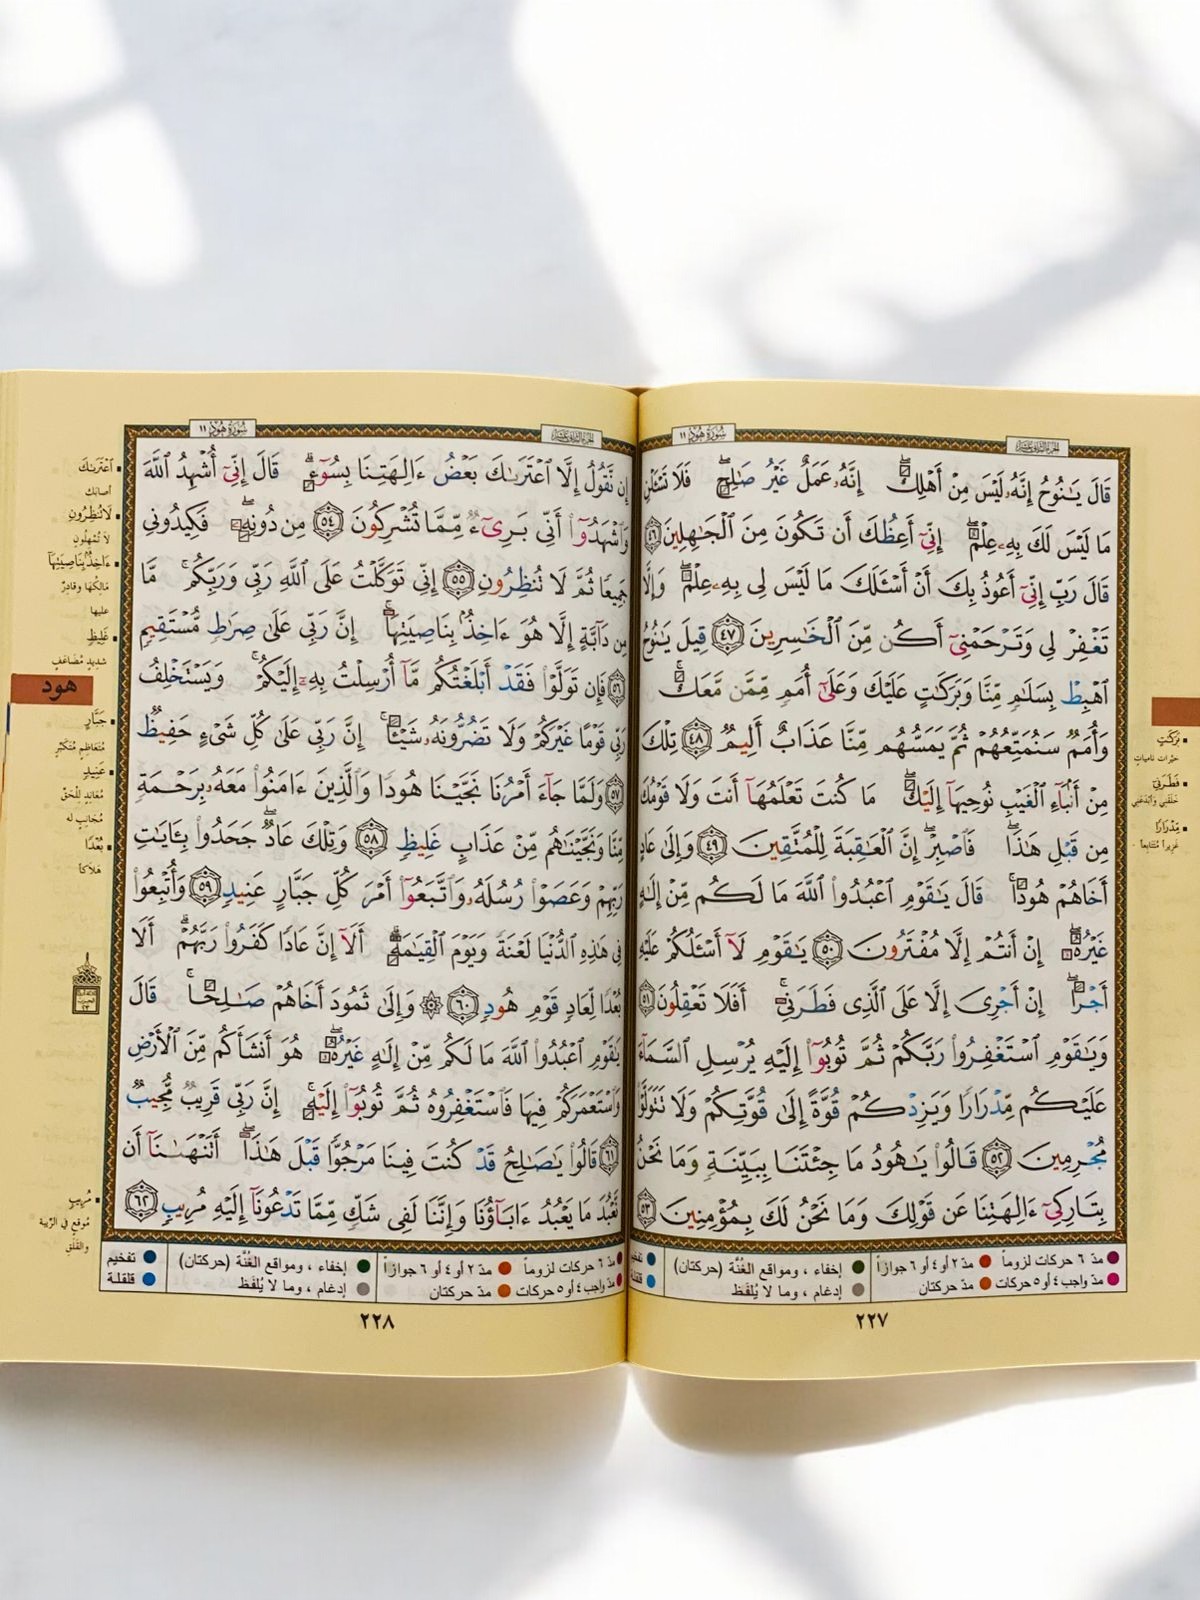 سُورَةُ هُودٍ ١١
قَالَ يَـٰنُوحُ إِنَّهُۥ لَيْسَ مِنْ أَهْلِكَ ۖ إِنَّهُۥ عَمَلٌ غَيْرُ صَـٰلِحٍ ۖ فَلَا تَسْـَٔلْنِ
مَا لَيْسَ لَكَ بِهِۦ عِلْمٌ ۖ إِنِّىٓ أَعِظُكَ أَن تَكُونَ مِنَ ٱلْجَـٰهِلِينَ ٤٦
قَالَ رَبِّ إِنِّىٓ أَعُوذُ بِكَ أَنْ أَسْـَٔلَكَ مَا لَيْسَ لِى بِهِۦ عِلْمٌ ۖ وَإِلَّا
تَغْفِرْ لِى وَتَرْحَمْنِىٓ أَكُن مِّنَ ٱلْخَـٰسِرِينَ ٤٧ قِيلَ يَـٰنُوحُ
ٱهْبِطْ بِسَلَـٰمٍ مِّنَّا وَبَرَكَـٰتٍ عَلَيْكَ وَعَلَىٰٓ أُمَمٍ مِّمَّن مَّعَكَ ۚ
وَأُمَمٌ سَنُمَتِّعُهُمْ ثُمَّ يَمَسُّهُم مِّنَّا عَذَابٌ أَلِيمٌ ٤٨ تِلْكَ
مِنْ أَنۢبَآءِ ٱلْغَيْبِ نُوحِيهَآ إِلَيْكَ ۖ مَا كُنتَ تَعْلَمُهَآ أَنتَ وَلَا قَوْمُكَ
مِن قَبْلِ هَـٰذَا ۖ فَٱصْبِرْ ۖ إِنَّ ٱلْعَـٰقِبَةَ لِلْمُتَّقِينَ ٤٩ وَإِلَىٰ عَادٍ
أَخَاهُمْ هُودًا ۚ قَالَ يَـٰقَوْمِ ٱعْبُدُوا۟ ٱللَّهَ مَا لَكُم مِّنْ إِلَـٰهٍ
غَيْرُهُۥٓ ۖ إِنْ أَنتُمْ إِلَّا مُفْتَرُونَ ٥٠ يَـٰقَوْمِ لَآ أَسْـَٔلُكُمْ عَلَيْهِ
أَجْرًا ۖ إِنْ أَجْرِىَ إِلَّا عَلَى ٱلَّذِى فَطَرَنِىٓ ۚ أَفَلَا تَعْقِلُونَ ٥١
وَيَـٰقَوْمِ ٱسْتَغْفِرُوا۟ رَبَّكُمْ ثُمَّ تُوبُوٓا۟ إِلَيْهِ يُرْسِلِ ٱلسَّمَآءَ
عَلَيْكُم مِّدْرَارًا وَيَزِدْكُمْ قُوَّةً إِلَىٰ قُوَّتِكُمْ وَلَا تَتَوَلَّوْا۟
مُجْرِمِينَ ٥٢ قَالُوا۟ يَـٰهُودُ مَا جِئْتَنَا بِبَيِّنَةٍ وَمَا نَحْنُ
بِتَارِكِىٓ ءَالِهَتِنَا عَن قَوْلِكَ وَمَا نَحْنُ لَكَ بِمُؤْمِنِينَ ٥٣
بَرَكَـٰتٍ
خيرات ناميات
فَطَرَنِى
خلقني وأبدعني
مِّدْرَارًا
غزيراً متتابعاً
مدّ ٦ حركات لزوماً مدّ ٢ أو ٤ أو ٦ جوازاً إخفاء ، ومواقع الغُنَّة (حركتان)
مدّ واجب ٤ أو ٥ حركات مدّ حركتان إدغام ، وما لا يُلفظ
٢٢٧
سُورَةُ هُودٍ ١١
إِن نَّقُولُ إِلَّا ٱعْتَرَىٰكَ بَعْضُ ءَالِهَتِنَا بِسُوٓءٍ ۗ قَالَ إِنِّىٓ أُشْهِدُ ٱللَّهَ
وَٱشْهَدُوٓا۟ أَنِّى بَرِىٓءٌ مِّمَّا تُشْرِكُونَ ٥٤ مِن دُونِهِۦ ۖ فَكِيدُونِى
جَمِيعًا ثُمَّ لَا تُنظِرُونِ ٥٥ إِنِّى تَوَكَّلْتُ عَلَى ٱللَّهِ رَبِّى وَرَبِّكُم ۚ مَّا
مِن دَآبَّةٍ إِلَّا هُوَ ءَاخِذٌۢ بِنَاصِيَتِهَآ ۚ إِنَّ رَبِّى عَلَىٰ صِرَٰطٍ مُّسْتَقِيمٍ
٥٦ فَإِن تَوَلَّوْا۟ فَقَدْ أَبْلَغْتُكُم مَّآ أُرْسِلْتُ بِهِۦٓ إِلَيْكُمْ ۚ وَيَسْتَخْلِفُ
رَبِّى قَوْمًا غَيْرَكُمْ وَلَا تَضُرُّونَهُۥ شَيْـًٔا ۚ إِنَّ رَبِّى عَلَىٰ كُلِّ شَىْءٍ حَفِيظٌ
٥٧ وَلَمَّا جَآءَ أَمْرُنَا نَجَّيْنَا هُودًا وَٱلَّذِينَ ءَامَنُوا۟ مَعَهُۥ بِرَحْمَةٍ
مِّنَّا وَنَجَّيْنَـٰهُم مِّنْ عَذَابٍ غَلِيظٍ ٥٨ وَتِلْكَ عَادٌ ۖ جَحَدُوا۟ بِـَٔايَـٰتِ
رَبِّهِمْ وَعَصَوْا۟ رُسُلَهُۥ وَٱتَّبَعُوٓا۟ أَمْرَ كُلِّ جَبَّارٍ عَنِيدٍ ٥٩ وَأُتْبِعُوا۟
فِى هَـٰذِهِ ٱلدُّنْيَا لَعْنَةً وَيَوْمَ ٱلْقِيَـٰمَةِ ۗ أَلَآ إِنَّ عَادًا كَفَرُوا۟ رَبَّهُمْ ۗ أَلَا
بُعْدًا لِّعَادٍ قَوْمِ هُودٍ ٦٠ ۞ وَإِلَىٰ ثَمُودَ أَخَاهُمْ صَـٰلِحًا ۚ قَالَ
يَـٰقَوْمِ ٱعْبُدُوا۟ ٱللَّهَ مَا لَكُم مِّنْ إِلَـٰهٍ غَيْرُهُۥ ۖ هُوَ أَنشَأَكُم مِّنَ ٱلْأَرْضِ
وَٱسْتَعْمَرَكُمْ فِيهَا فَٱسْتَغْفِرُوهُ ثُمَّ تُوبُوٓا۟ إِلَيْهِ ۚ إِنَّ رَبِّى قَرِيبٌ مُّجِيبٌ
٦١ قَالُوا۟ يَـٰصَـٰلِحُ قَدْ كُنتَ فِينَا مَرْجُوًّا قَبْلَ هَـٰذَآ ۖ أَتَنْهَىٰنَآ أَن
نَّعْبُدَ مَا يَعْبُدُ ءَابَآؤُنَا وَإِنَّنَا لَفِى شَكٍّ مِّمَّا تَدْعُونَآ إِلَيْهِ مُرِيبٍ ٦٢
ٱعْتَرَىٰكَ
أصابك
لَا تُنظِرُونِ
لا تُمهلون
ءَاخِذٌۢ بِنَاصِيَتِهَآ
مالكها وقادرٌ
عليها
غَلِيظٍ
شديدٍ مُضاعفٍ
هود
جَبَّارٍ
مُتعاظمٍ مُتكبّرٍ
عَنِيدٍ
مُعاندٍ للحقّ
مُجانبٍ له
بُعْدًا
هلاكاً
مُرِيبٍ
مُوقعٍ في الرّيبة
والقلق
مدّ ٦ حركات لزوماً مدّ ٢ أو ٤ أو ٦ جوازاً إخفاء ، ومواقع الغُنَّة (حركتان) تفخيم
مدّ واجب ٤ أو ٥ حركات مدّ حركتان إدغام ، وما لا يُلفظ قلقلة
٢٢٨